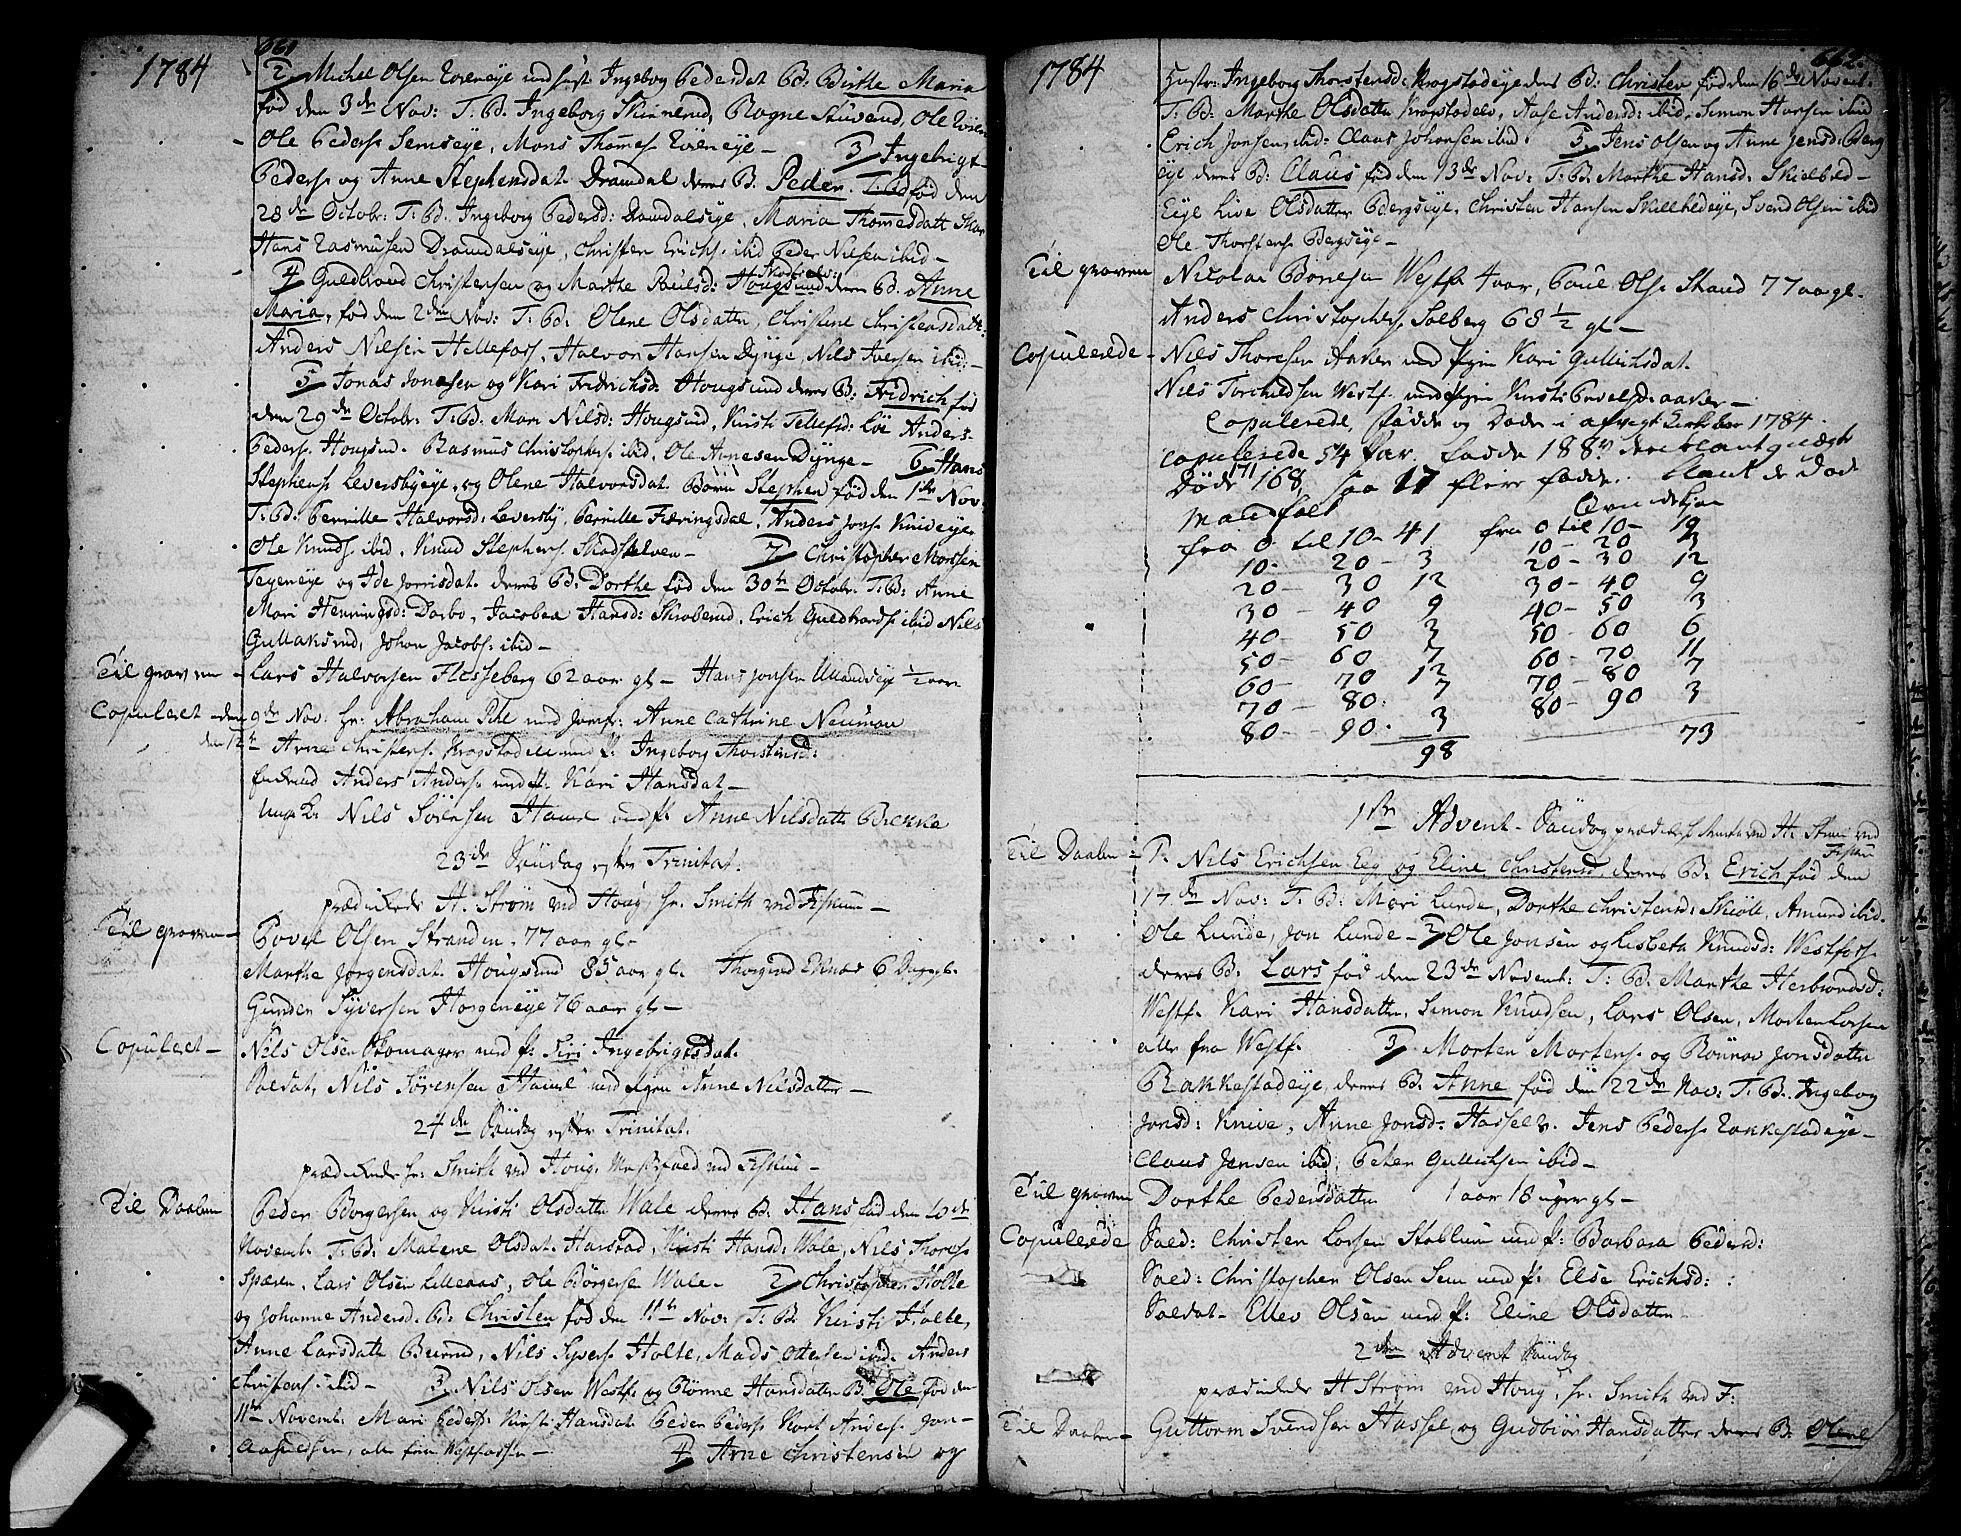 1784
661
2/ Michel Olsen Eoreneye med hustr. Ingebog Pedersdat B. Birthe Maria
fød den 3de Nov: T. B. Ingeborg Skinnerud, Rogne Stuverud, Ole
Ole Peders. Semseye, Mons Thomes. — 3/ Ingebrigt
Peders. og Anne Stephensdat. Dramdal deres B. Peder. fød den
28de Octobr: T. B. Ingeborg Pedersd: Dramdalseye, Maria Thomesdatt
Hans Rasmusen Dramdalseye, Christen Erichs. ibid Peder Nilsen ibid —
4/ Guldbrand Christensen og Marthe Poulsd: Hougsund deres B. Anne
Maria, fød den 2den Nov: T. B. Olene Olsdatter, Christine Christensdatt:
Anders Nilsen Hellefoss, Halvor Hansen Dynge, Nils Iversen ibid: —
5/ Jonas Jonesen og Kari Fridrichsd. Hougsund deres B: Fridrich fød
den 29de Octobr: T. B. Mari Nilsd: Hougsund, Kirsti Tellefsd: Löe Anders
Peders. Hougsund. Rasmus Christophers. ibid, Ole Arnesen Dynge — 6/ Hans
Stephens. Leversbyeye, og Olene Halvorsdat. Barn Stephen fød den 1ste Nov:
T. B. Pernille Halvorsd: Leversby, Pernille Færingsdal, Anders Jons. Kniveeye
Ole Knuds. ibid, Knud Stephens. Skodselven — 7/ Christopher Monsen
Tegeneye og Ide Jorrisdat. deres B: Dorthe fød den 30te Octobr. T. B: Anne
Mari Henningsd: Dorbo, Jacobea Hansd: Skroberud, Erich Guldbrands. ibid Nils
Gullaksrud, Johan Jacobs. ibid —
Til graven — Lars Halvorsen Flesseberg 62 aar gl — Hans Jonsen Ullandseye ½ aar
Copuleret — den 9de Nov. Hr. Abraham Pihl med Jomfr: Anne Cathrine Neuman
den 12te Arne Christens. Krogstadelv med P. Ingeborg Thorstensd:
Anders Anders. med P. Kari Hansdat —
Ung K. Nils Sörensen Hame med P. Anne Nilsdatt: Bekke
23de Søndag efter Trinitat.
prædikede H. Strøm ved Houg, Hr. Smith ved Fiskum —
Til graven — Povel Olsen Stranden, 77 aar gl —
Marthe Jørgensdat. Hougsund 85 aar gl. Thorgrad Eknas 6 Dage gl.
Gunder Syversen Horgeneye 76 aar gl —
Copuleret — Nils Olsen Skomager med P. Siri Ingebrigtsdat.
Soldat, Nils Sörensen Hame med Pigen Anne Nilsdatter —
24de Søndag efter Trinitat.
prædikede Hr: Smith ved Houg, ved Fiskum —
Til Daaben Peder Børgersen og Kirsti Olsdatter Wale deres B. Hans fød den 10de
Novemb. T. B. Malene Olsdat. Harstad, Kirsti Hansd: Wale, Nils Thores.
Spæren, Lars Olsen Lilleaas, Ole Börgers. Wale — 2/ Christopher Holte
og Johanne Andersd. B. Christen fød den 11te Nov: T. B. Kirsti Holte,
Anne Larsdatt: Buerud, Nils Syvers. Holte, Mads Ottersen ibid. Anders
Christens: ibid — 3/ Nils Olsen Westf. og Rönne Hansdatter B. Ole fød den
11te Novemb. Mari Peders: Kirsti Hansdat. Peder Peders. Kort Anders. Jon
Aasnesen, alle fra Westfossen — 4/ Arne Christensen og
1784
662.
Hustr: Ingeborg Thorstensd: Krogstadeye deres B: Christen fød den 16de Novemb.
T. B. Marthe Olsdatter Krogstadelv, Aase Andersd: ibid, Simon Hansen ibid
Erich Jonsen, ibid: Claus Johansen ibid. 5/ Jens Olsen og Anne Jensd: Berg
eye deres B: Claus fød den 13de Nov: T. B: Marthe Hansd: Skielbred —
Eeye Live Olsdatter Bergseye, Christen Hansen Skilbredeye, Svend Olsen ibid
Ole Thorstens. Bergseye —
Til graven Nicolai Bönesen Westf. 4 aar, Poul Ols. Strand 77 aar gl —
Anders Christophers. Solberg 68 ½ gl —
Copulerede — Nils Thoresen Aaker med Pigen Kari Gulliksdat.
Nils Torchildsen Westf. med Pigen Kirsti Povelsd: aaker —
Copulerede, Fødde og Døde i afvigt Kirkeaar 1784.
Copulerede 54 Par. Fødde 188,
Døde 171 168, saa 17 fleere fødde. blant de Døde
Mandfolk Qvindekjøn
fra 0 til 10 — 41 fra 0 til 10 — 19
10 — 20 — 3 10 — 20 3
20 — 30 12 20 — 30 12
30 — 40 9 30 — 40 9
40 — 50 3 40 — 50 3
50 — 60 7 50 — 60 6
60 — 70 12 60 — 70 11
70 — 80: 7 70 — 80 7
80 — 90. 3 80 — 90 3
98 73
1ste Advent — Søndag prædikede Smith ved H. Strøm ved
Fiskum
Til Daaben: 1. Nils Erichsen Eeg og Eline Christensd. deres B. Erich fød den
17de Nov: T. B. Mari Lunde, Dorthe Christensd: Skiöl, Amund ibid.
Ole Lunde, Jon Lunde — 2/ Ole Jonsen og Lisbeta Knudsd: Westfos.
deres B. Lars fød den 23de Novemb: T. B. Marthe Herbrandsd:
Westf. Kari Hansdatter, Simon Knudsen, Lars Olsen, Morten Larsen
alle fra Westf. 3/ Morten Mortens. og Rönnov Jonsdatter
Rakkestadeye, deres B. Anne fød den 22de Nov: T. B. Ingebog
Jonsd: Knive, Anne Jonsd: Hassel. Jens Peders. Rakkestadeye —
Claus Jensen ibid, Peter Gullichsen ibid —
Til graven Dorthe Pedersdatter 1 aar 18 uger gl —
Copulerede Sold: Christen Larsen Stablum med P: Barbara Pedersd:
Sold: Christopher Olsen Sem med P. Else Erichsd: :
Soldat — Ellev Olsen med P: Eline Olsdatter —
2den Advent Søndag
prædikede H Strøm ved Houg, Hr. Smith ved F:
Til Daaben — Guttorm Svendsen Hassel, og Gudbiör Hansdatter deres B. Olene